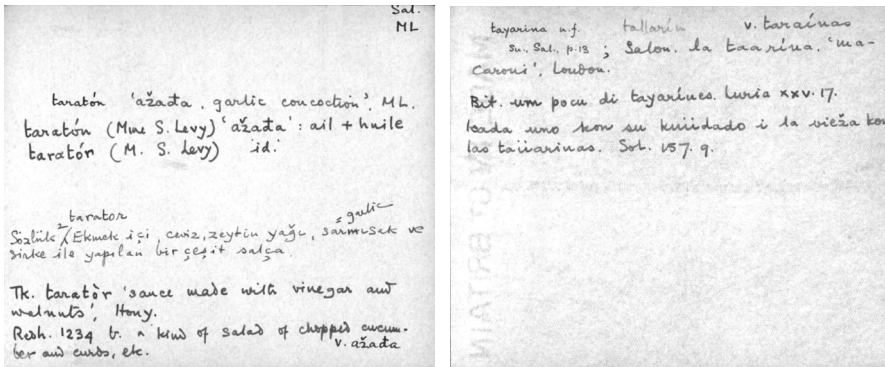 Sal.
ML
taratón 'ažađa, garlic concoction', ML.
taratón (Mme S. Levy) 'ažađa' : ail + huile
taratór (M. S. Levy) id.
tarator = garlic
Sözlük² / Ekmek içi, ceviz, zeytin yağı, sarmısak ve
sirke ile yapılan bir çeşit salça.
Tk. taratòr 'sauce made with vinegar and
walnuts', Hony.
Redh. 1234 b. a kind of salad of chopped cucum-
ber and curds, etc.
v. ažađa
tayarina n.f. tallarín v. taraínas
Su., Sal., p.13 ; Salon. la taarína. 'ma-
caroni', London.
Bit. um pocu di tayarínes. Luria xxv. 17.
kada uno kon su kuiidado i la vieža kon
las taiiarinas. Sol. 157. 9.